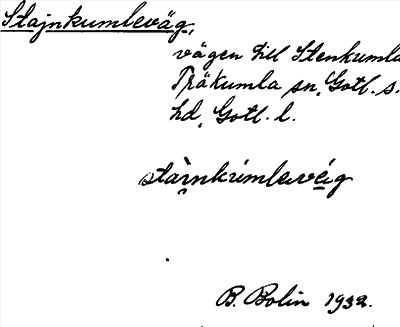 Stajnkumleväg,
vägen till Stenkumla
Träkumla sn, Gotl. s.
hd, Gotl. l.
stàrnkùmlevég
B. Bolin 1932.